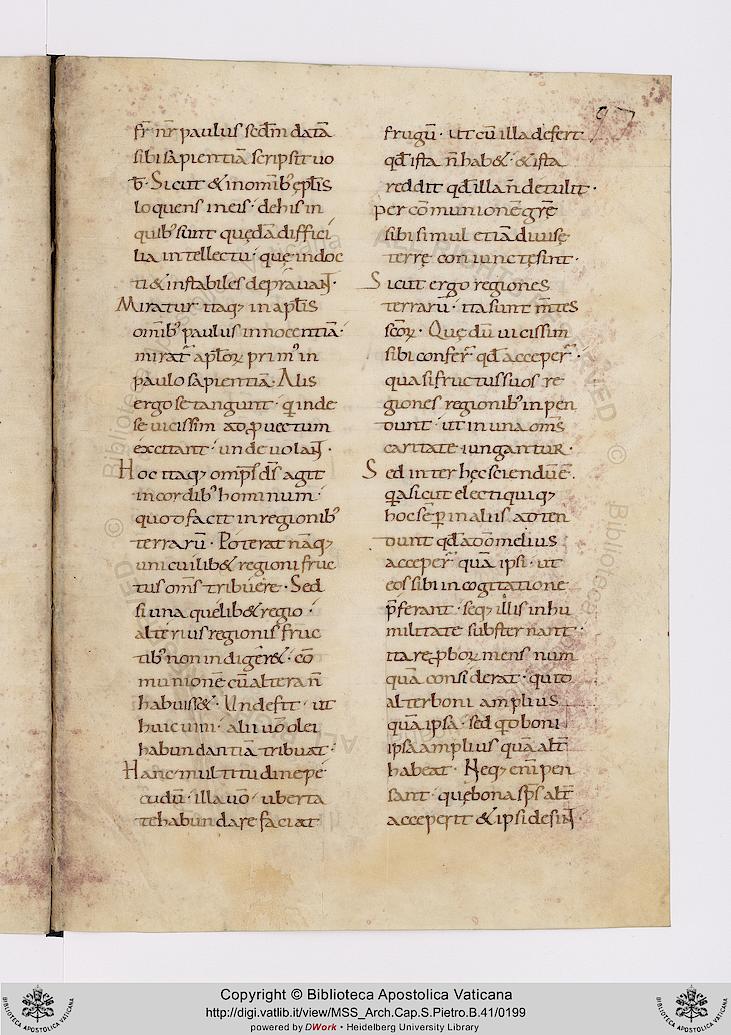 97
fr̄ nr̄ paulus sedm̄ datā
sibi sapientiā scripsit uo
b̄· Sicut & in omīb; ep̄lis
loquens in eis· de his in
quib; sunt quędā diffici
lia intellectu· quę indoc
ti & instabiles deprauaƞ̄·
Miratur itaq; in ap̄lis
omīb; paulus innocentiā·
mirat̄ ap̄loꝝ primꝰ in
paulo sapientiā· Aliis
ergo se tangunt· q̄ inde
se uicissim ad ꝓuectum
excitant· unde uolaƞ̄·
Hoc itaq; omp̄s d̄s agit
in cordib; hominum·
quod facit in regionib;
terrarū· Poterat nāq;
unicuilib& regioni fruc
tus om̄s tribuere· Sed
si una quęlib& regio·
alterius regionis fruc
tib; non indiger&· cō
munionē cū altera n̄
habuiss&· Unde fit· ut
huic uini· alii uō olei
habundantiā tribuat·
Hanc multitudine pe
cudū· illa uō· uberta
te habundare faciat
frugū· ut cū illa defert
qd̄ ista n̄ hab&· & ista
reddit qd̄ illa n̄ detulit·
per cōmunionē grę̄
sibi simul etiā diuisę
terrę coniunctę sint·
Sicut ergo regiones
terrarū· ita sunt m̄tes
sc̄oꝝ· Quę dū uicissim
sibi confer̄ qd̄ acceper̄·
quasi fructus suos re
giones regionib; inpen
dunt· ut in una om̄s
caritate iungantur·
Sed inter hęc sciendū ē·
q̄a sicut electi quiq;
hoc sēp in aliis adten
dunt qd̄ a dō melius
acceper̄ quā ipsi· ut
eos sibi in cogitatione
p̄ferant· seq; illis in hu
militate substernant·
ita reꝓboꝝ mens num
quā considerat· quid
alter boni amplius
quā ipsa· sed qd boni
ipsa amplius quā alt̄
habeat· Neq; eni pen
sant· quę bona sp̄s alt̄
acceperit & ipsi desiƞ̄·
Copyright © Biblioteca Apostolica Vaticana
http://digi.vatlib.it/view/MSS_Arch.Cap.S.Pietro.B.41/0199
powered by DWork • Heidelberg University Library
BIBLIOTECA APOSTOLICA VATICANA
BIBLIOTECA APOSTOLICA VATICANA